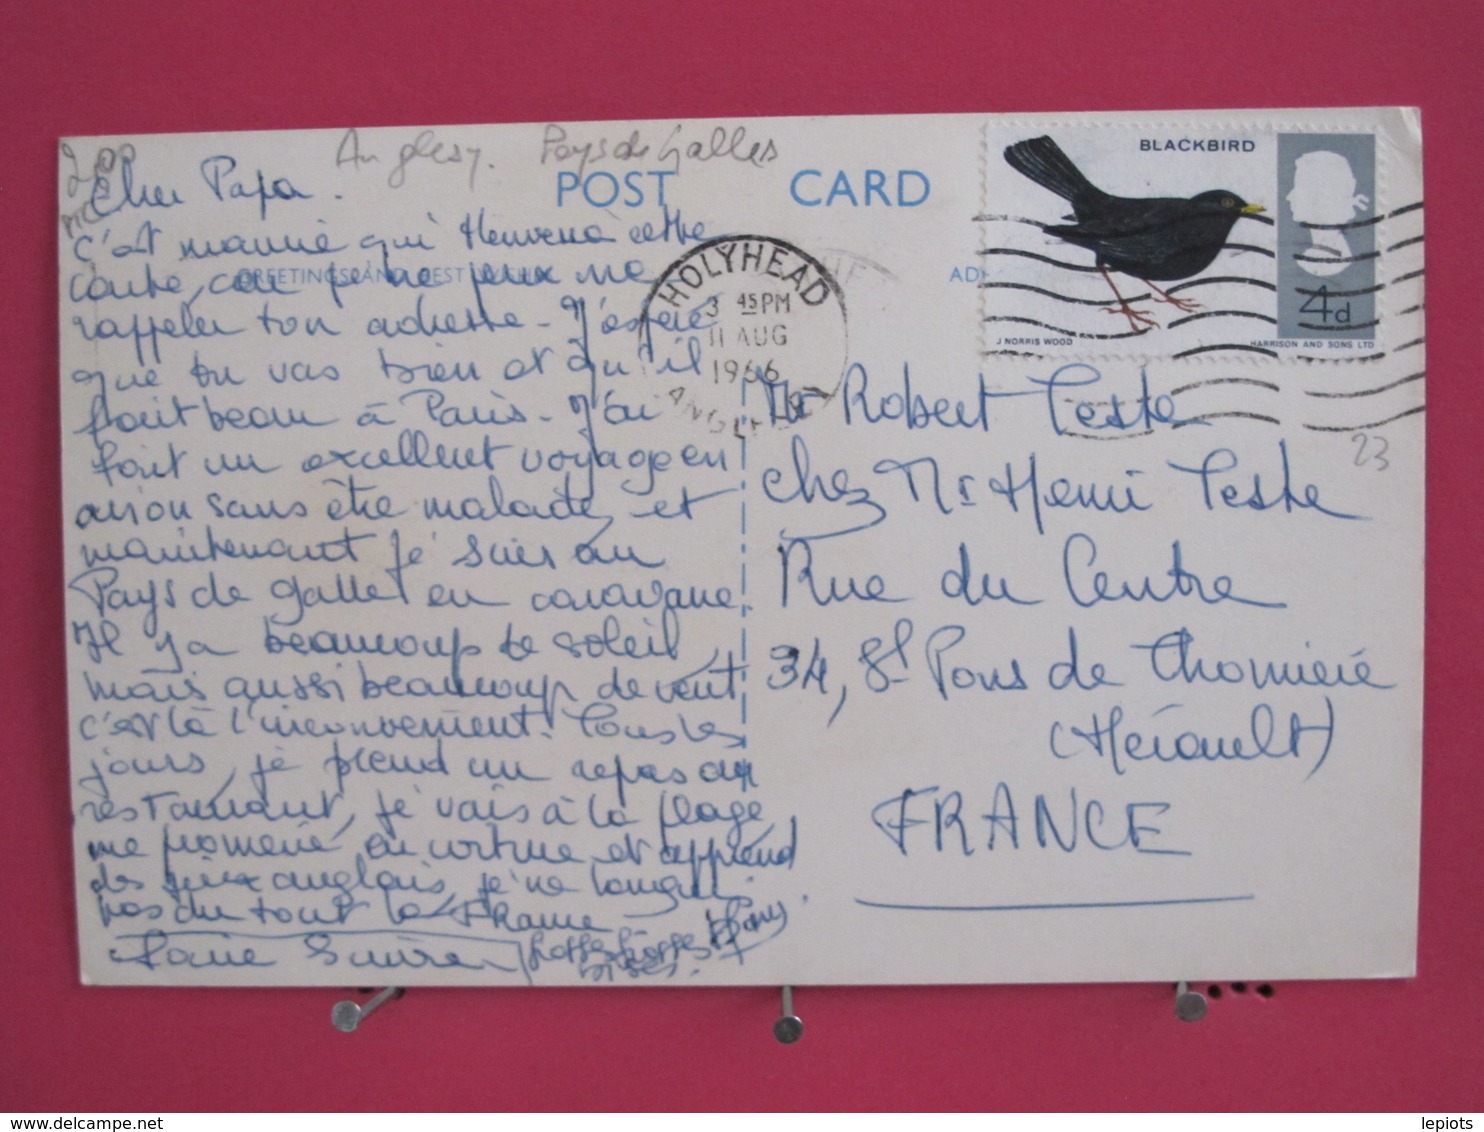 Anglesy. Pays de Galles
200
POST CARD
Cher Papa.
c'est mamie qui t'enverra cette
carte, car je ne peux me
rappeler ton adresse - J'espère
que tu vas bien et qu'il
fait beau à Paris - J'ai
fait un excellent voyage en
avion sans être malade, et
maintenant je suis au
Pays de galle en caravane.
Il y a beaucoup de soleil
mais aussi beaucoup de vent
c'est là l'inconvenient. Tous les
jours, je prend un repas au
restaurant, je vais à la plage
me promené en voiture et apprend
des jeux anglais, je ne
pas du tout la France
grosses grosses
bises.
HOLYHEAD
3 45 PM
11 AUG
1966
ANGLESEY
BLACKBIRD
4d
J NORRIS WOOD
HARRISON AND SONS LTD
Mr Robert Teste
chez Mr Henri Teste
Rue du Centre
34, St Pons de Thomière
(Hérault)
FRANCE
23
delcampe.net
lepiots